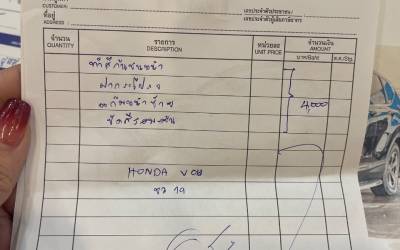 CUSTOMER
ที่อยู่
ADDRESS
เลขประจำตัวประชาชน /
เลขประจำตัวผู้เสียภาษีอากร
จำนวน รายการ หน่วยละ จำนวนเงิน
QUANTITY DESCRIPTION UNIT PRICE AMOUNT
บาท/Baht ส.ต./Stg.
ทำสีกันชนหน้า
ฝากระโปรง
แก้มหน้าซ้าย
4,000
ขัดสีรอบคัน
HONDA